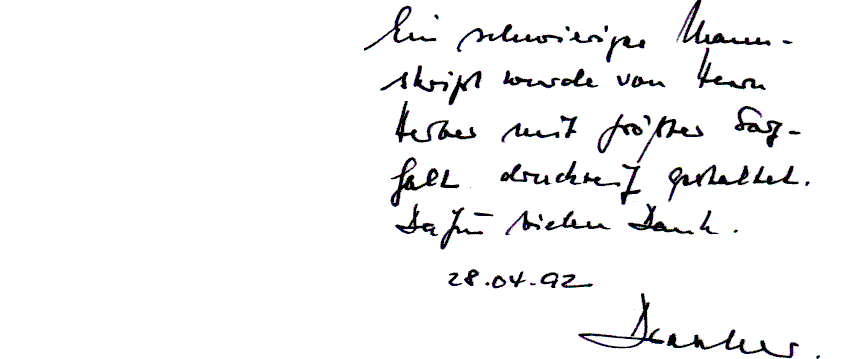 Ein schwieriges Manu-
skript wurde von Herrn
Herber mit größter Sorg-
falt druckreif gestaltet.
Dafür vielen Dank.
28.04.92